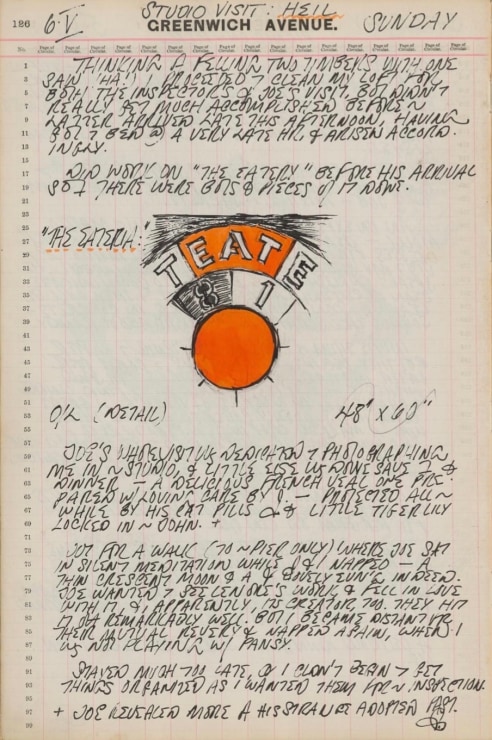 STUDIO VISIT: HEIL
186 6·V GREENWICH AVENUE. SUNDAY
THINKING OF FELLING TWO TIMBERS WITH ONE
SAW (HA!) I PROCEEDED TO CLEAN MY LOFT FOR
BOTH THE INSPECTORS & JOE'S VISIT, BUT DIDN'T
REALLY GET MUCH ACCOMPLISHED BEFORE ~
LATTER ARRIVED LATE THIS AFTERNOON, HAVING
GOT TO BED @ A VERY LATE HR. & ARISEN ACCORD-
INGLY.
DID WORK ON "THE EATERY" BEFORE HIS ARRIVAL
SO THERE WERE BITS & PIECES OF IT DONE.
"THE EATERY:"
TEATE
8 1
O/L (DETAIL) 48" X 60"
JOE'S WHOLE VISIT WS DEDICATED TO PHOTOGRAPHING
ME IN ~ STUDIO, & LITTLE ELSE WS DONE SAVE
DINNER — A DELICIOUS FRENCH VEAL ONE PRE-
PARED W/ LOVING CARE BY J. — PROTECTED ALL ~
WHILE BY HIS CAT PILLS & LITTLE TIGER LILY
LOCKED IN ~ JOHN. +
OUT FOR A WALK (TO ~ PIER ONLY) WHERE JOE SAT
IN SILENT MEDITATION WHILE I NAPPED — A
THIN CRESCENT MOON & A LOVELY EVN'G INDEED.
JOE WANTED TO SEE LENORE'S WORK & FELL IN LOVE
WITH IT, &, APPARENTLY, ITS CREATOR TOO. THEY HIT
IT OFF REMARKABLY WELL. BUT I BECAME DISTANT IN
THEIR MUTUAL REVERY & NAPPED AGAIN, WHEN I
WS NOT PLAYING W/ PANSY.
STAYED MUCH TOO LATE, & I DIDN'T BEGIN TO GET
THINGS ORGANIZED AS I WANTED THEM FOR ~ INSPECTION.
+ JOE REVEALED MORE OF HIS STRANGE ADOPTED PAST.